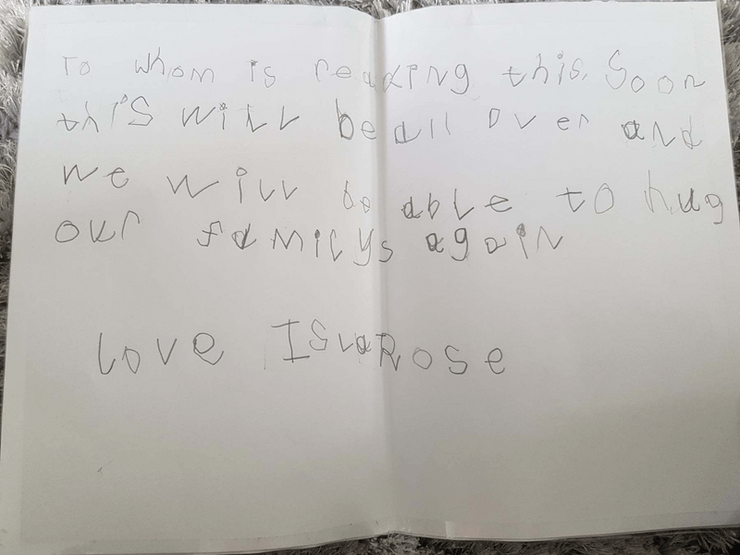 To whom is reading this. Soon
this will be all over and
we will be able to hug
our familys again
love IslaRose